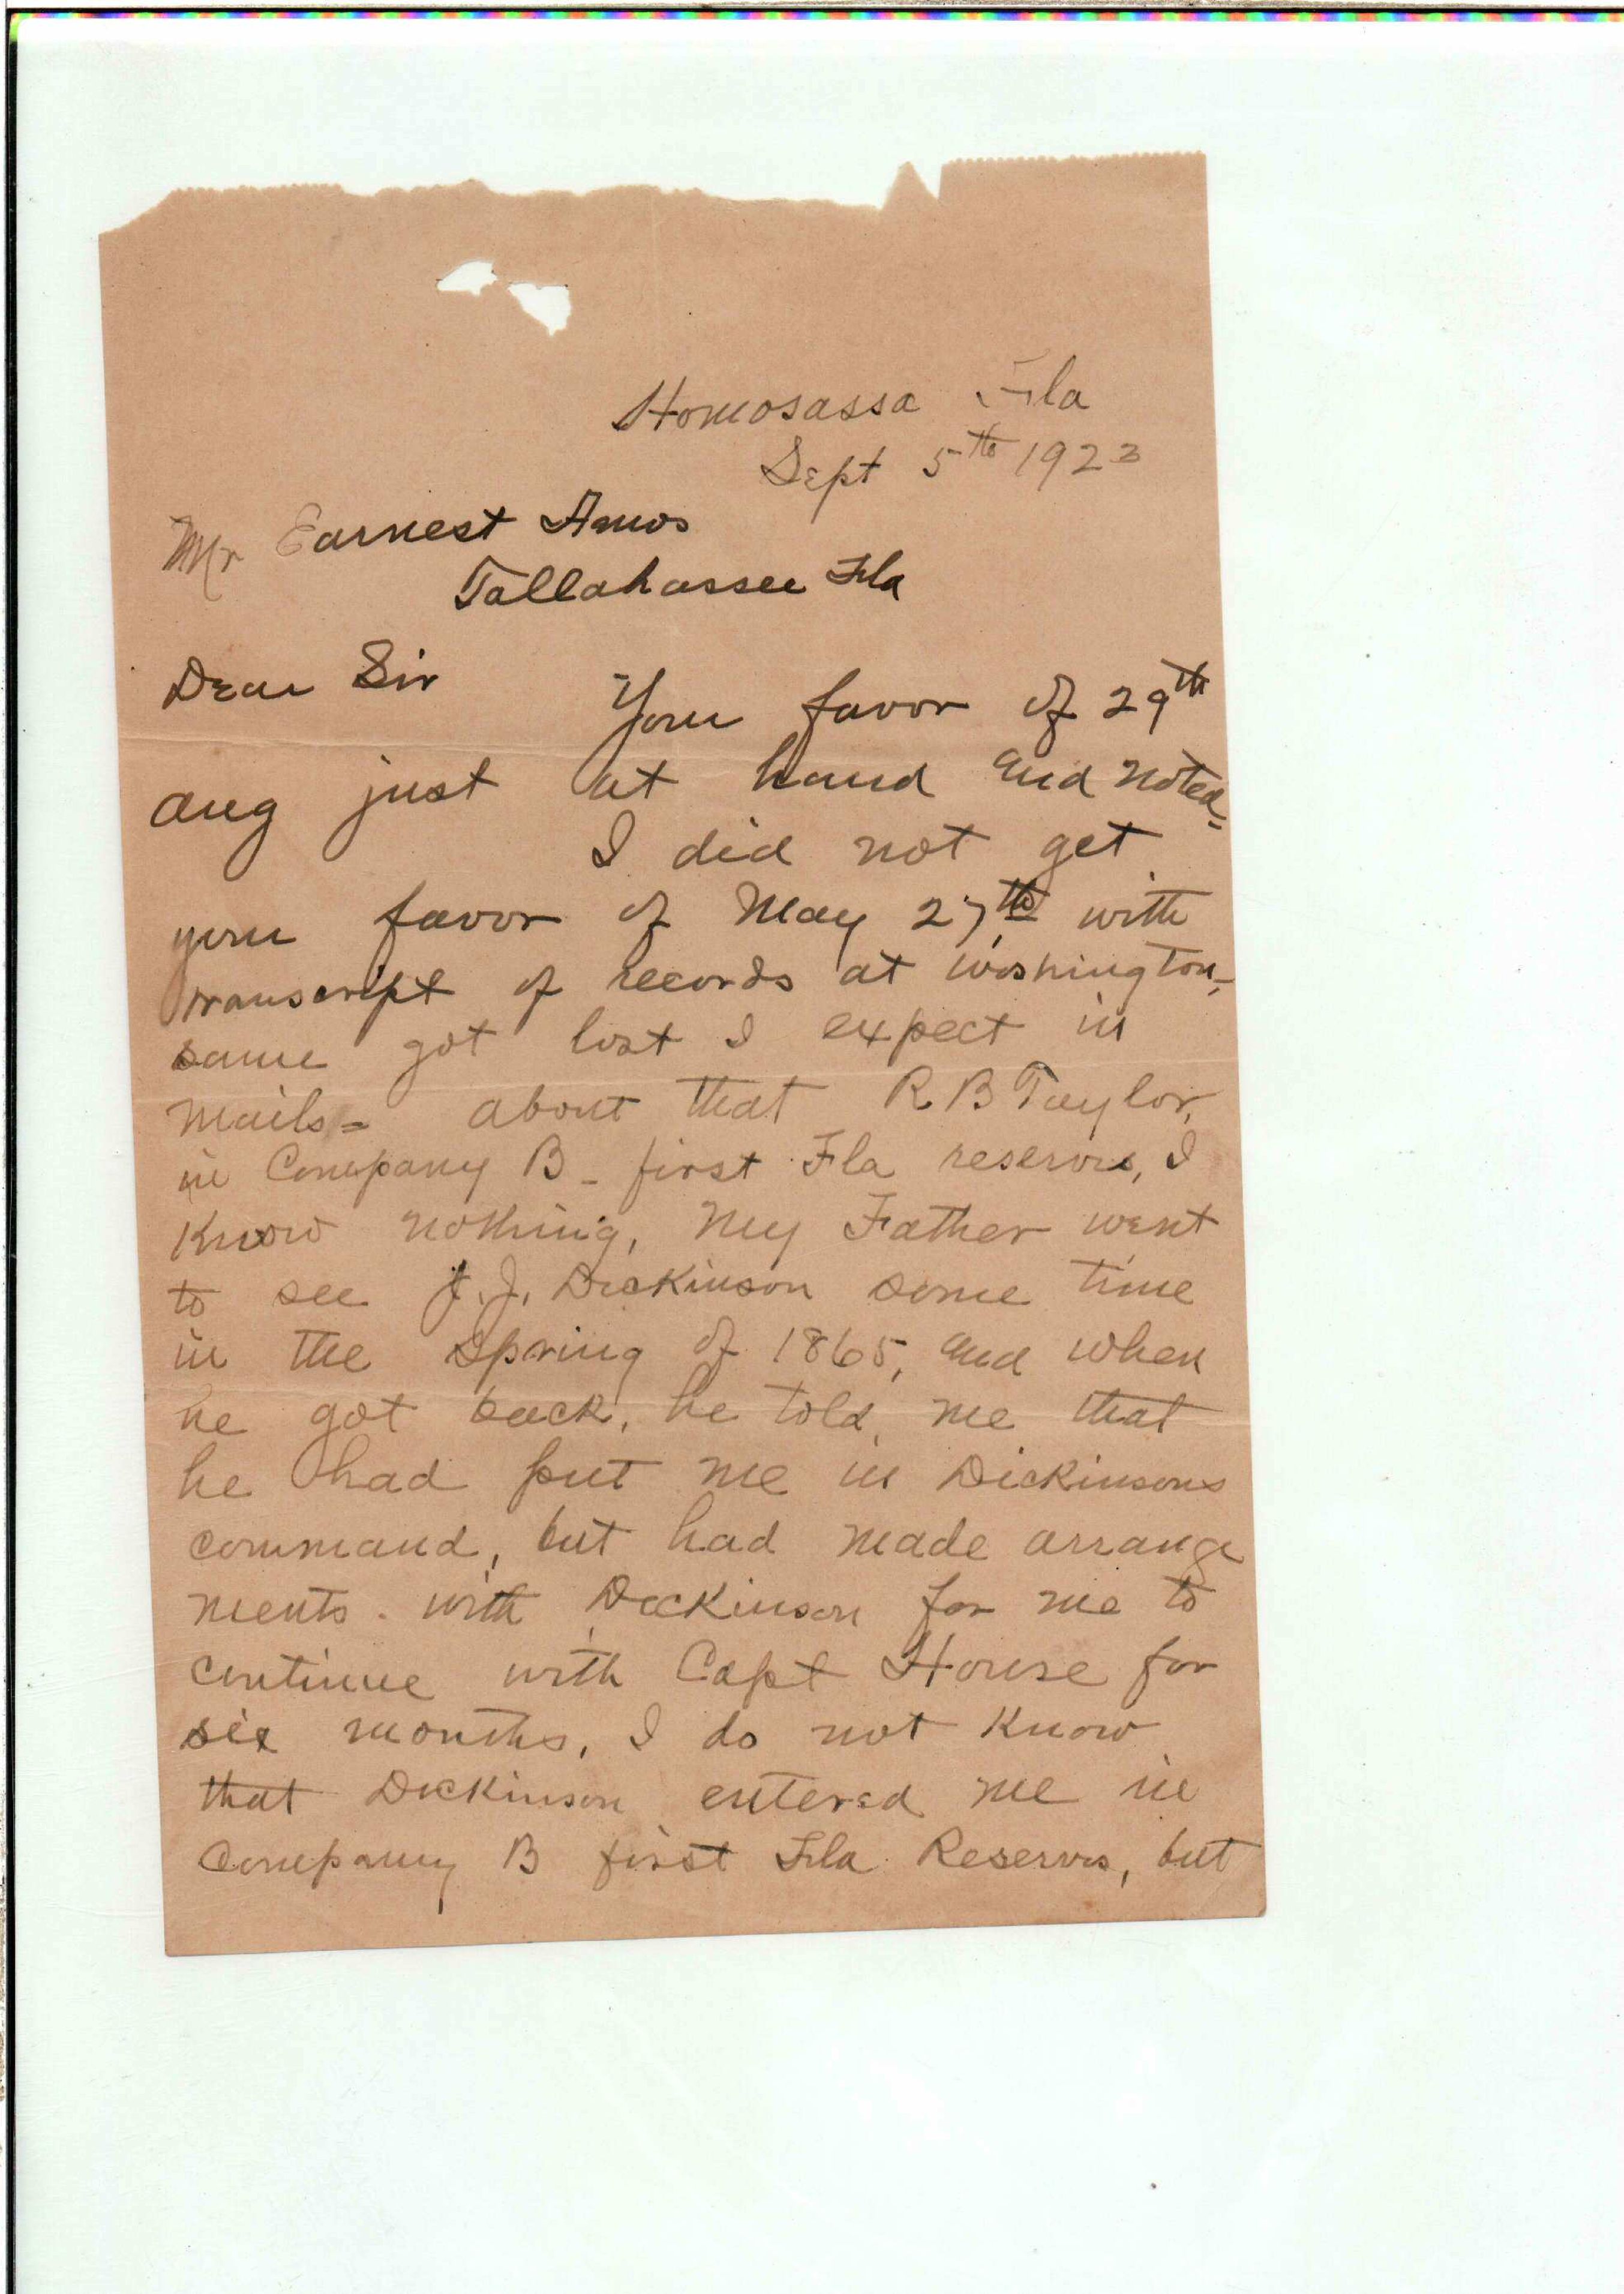 Homosassa Fla
Sept 5th 1923
Mr Earnest Amos
Tallahassee Fla
Dear Sir Your favor of 29th
aug just at hand and noted=
I did not get
your favor of May 27th with
transcript of records at Washington,
same got lost I expect in
mails= about that R B Taylor,
in Company B - first Fla reserves, I
Know nothing, My Father went
to see J. J. Dickinson some time
in the spring of 1865, and when
he got back, he told, me that
he had put me in Dickinsons
command, but had made arrange
ments. with Dickinson for me to
continue with Capt House for
six months, I do not Know
that Dickinson entered me in
Company B first Fla Reserves, but